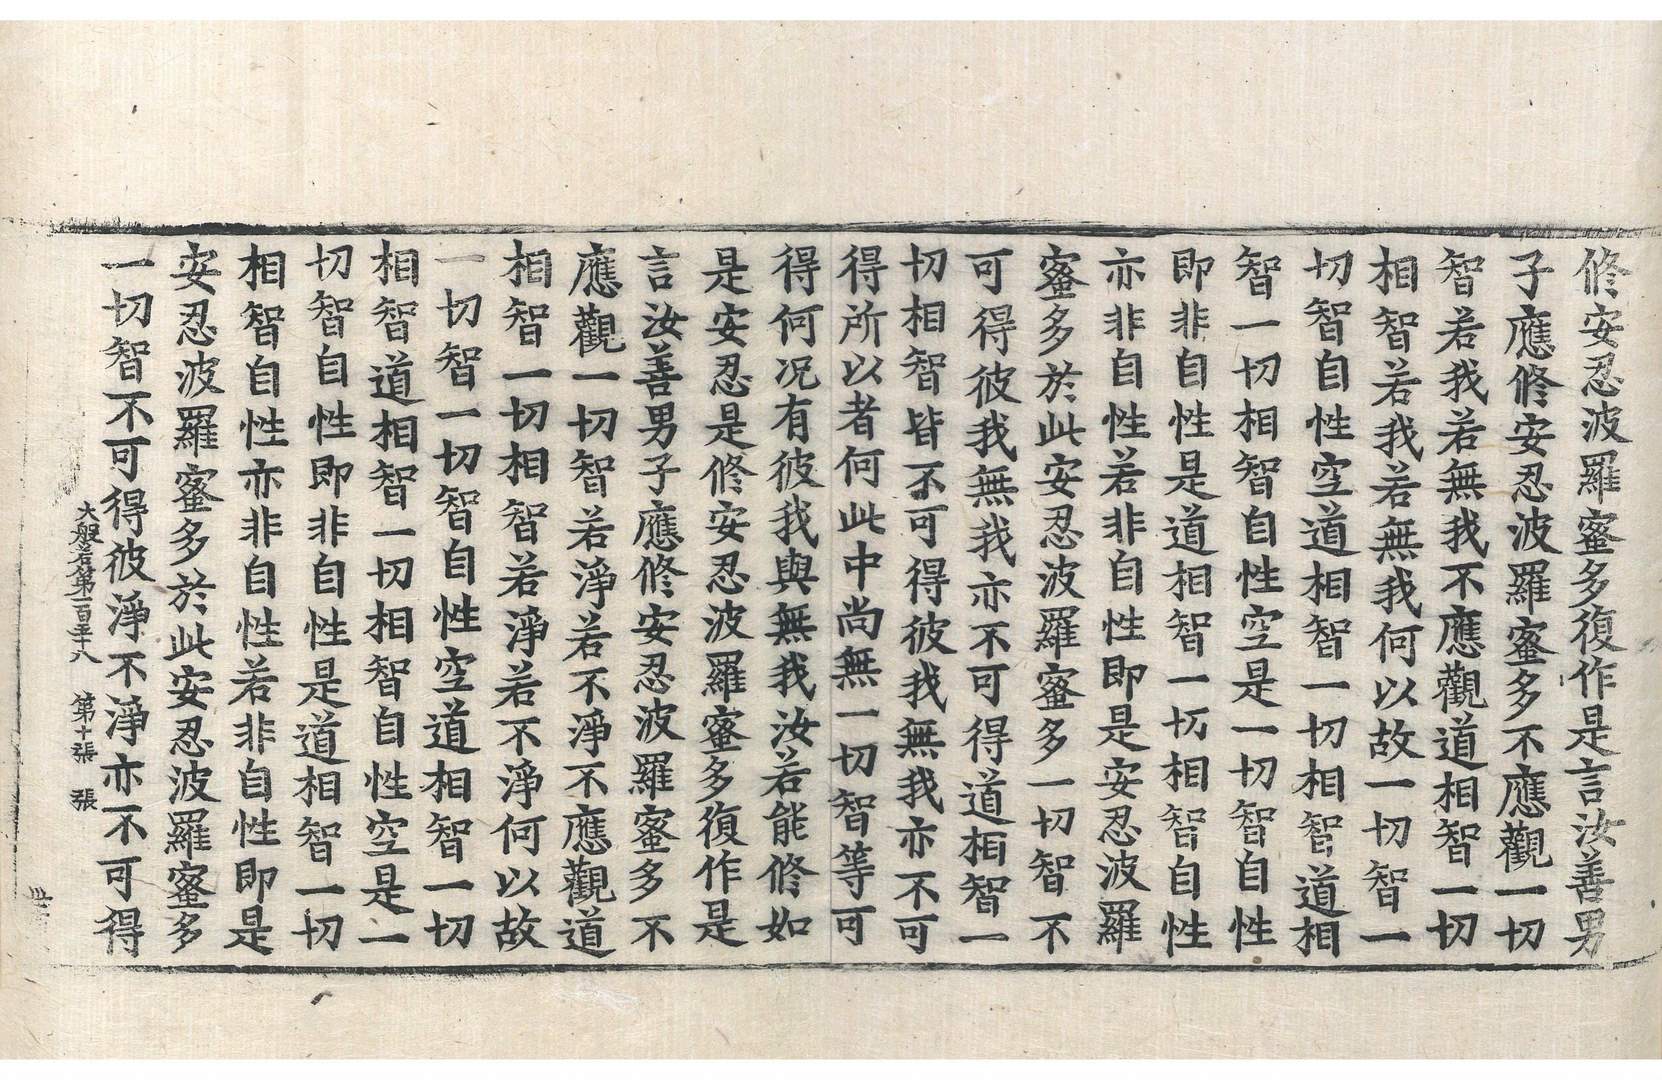 修安忍波羅蜜多復作是言汝善男
子應修安忍波羅蜜多不應觀一切
智若我若無我不應觀道相智一切
相智若我若無我何以故一切智一
切智自性空道相智一切相智道相
智一切相智自性空是一切智自性
即非自性是道相智一切相智自性
亦非自性若非自性即是安忍波羅
蜜多於此安忍波羅蜜多一切智不
可得彼我無我亦不可得道相智一
切相智皆不可得彼我無我亦不可
得所以者何此中尚無一切智等可
得何况有彼我與無我汝若能修如
是安忍是修安忍波羅蜜多復作是
言汝善男子應修安忍波羅蜜多不
應觀一切智若淨若不淨不應觀道
相智一切相智若淨若不淨何以故
一切智一切智自性空道相智一切
相智道相智一切相智自性空是一
切智自性即非自性是道相智一切
相智自性亦非自性若非自性即是
安忍波羅蜜多於此安忍波羅蜜多
一切智不可得彼淨不淨亦不可得
大般若第一百五十八 第十張 張